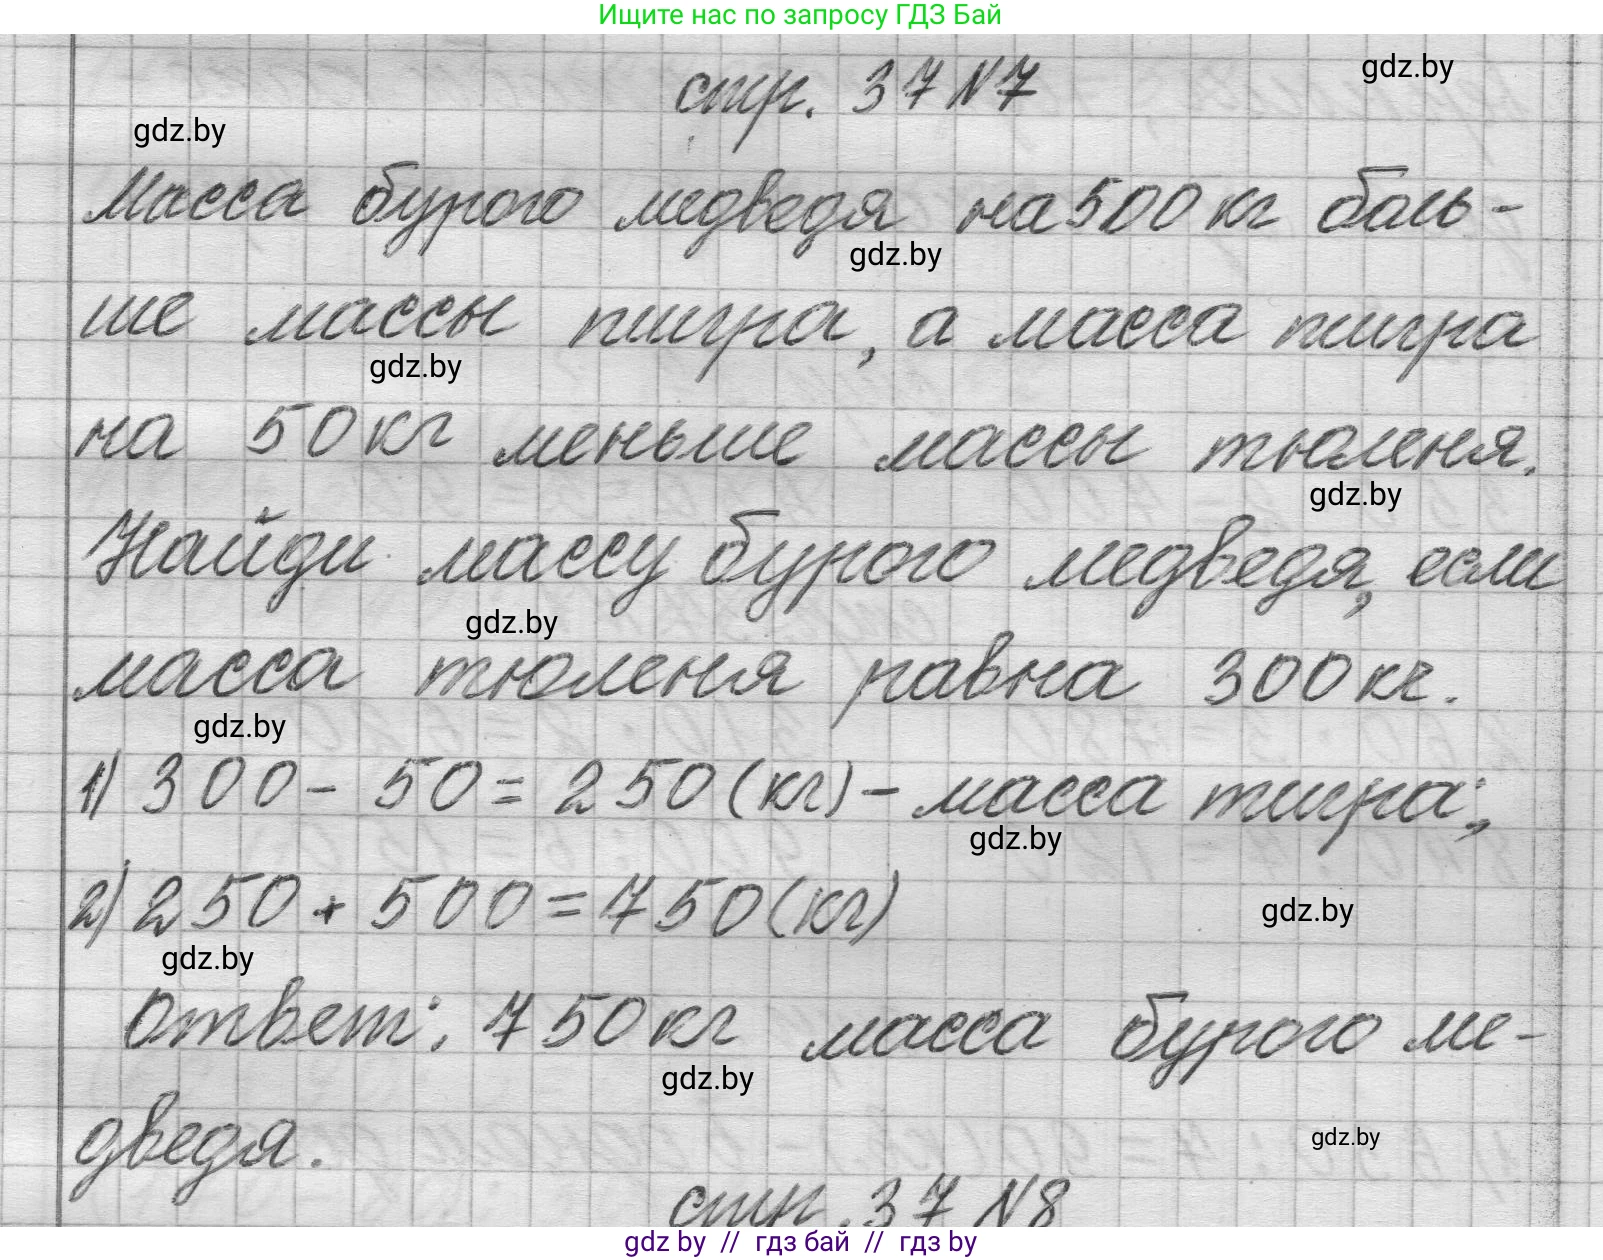 Ищите нас по запросу ГДЗ Бай
стр. 37 N 7
gdz.by
gdz.by
Масса бурого медведя на 500 кг боль-
gdz.by
ше массы тигра, а масса тигра
gdz.by
на 50 кг меньше массы тюленя.
gdz.by
Найди массу бурого медведя, если
gdz.by
масса тюленя равна 300 кг.
gdz.by
1) 300 - 50 = 250 (кг) - масса тигра;
gdz.by
2) 250 + 500 = 750 (кг)
gdz.by
gdz.by
Ответ: 750 кг масса бурого ме-
gdz.by
дведя.
gdz.by
стр. 37 N 8
gdz by // гдз бай // гдз by